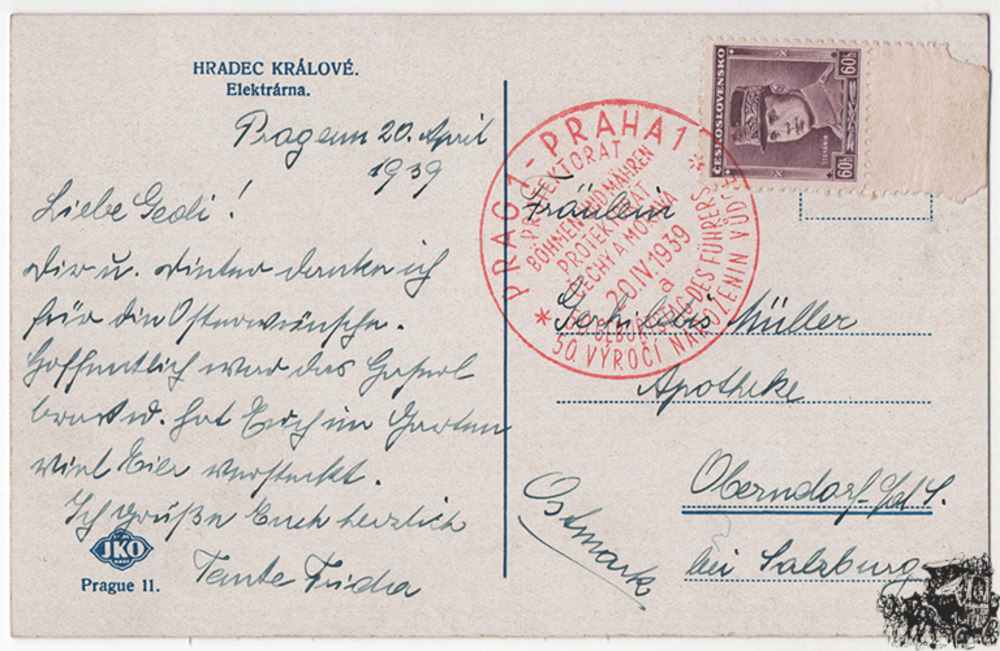 HRADEC KRÁLOVÉ.
Elektrárna.
Prag am 20. April
1939
Liebe Gedi!
Dir u. Dieter danke ich
für die Osterwünsche.
Hoffentlich war das Haserl
brav u. hat Euch im Garten
viel Eier versteckt.
Ich grüße Euch herzlich
Tante Frida
JKO
Prague 11.
ČESKOSLOVENSKO
60h
60h
ŠTEFÁNIK
PRAG 1 - PRAHA 1
PROTEKTORAT
BÖHMEN UND MÄHREN
PROTEKTORÁT
ČECHY A MORAVA
20.IV.1939
a
50. GEBURTSTAG DES FÜHRERS
50. VÝROČÍ NAROZENIN VŮDCE
Fräulein
Müller
Apotheke
Oberndorf
bei Salzburg
Ostmark